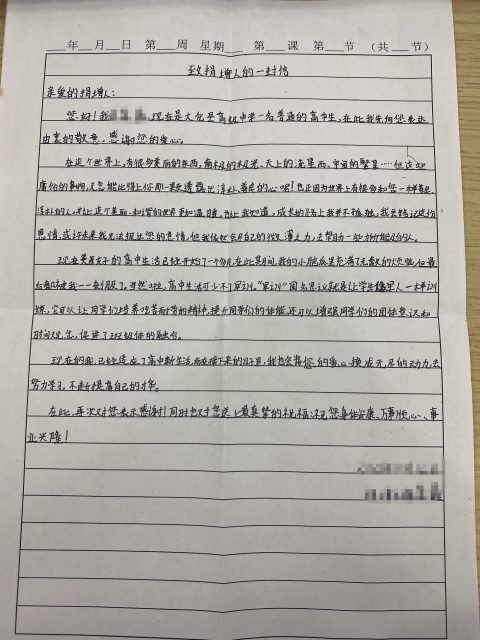 ___年___月___日 第___周 星期___ 第___课 第___节 (共___节)
致捐增人的一封信
亲爱的捐增人:
您好!我 ,现在是大化县高级中学一名普通的高中生,在此我先向您表达
由衷的敬意,感谢您的爱心。
在这个世界上,有很多美丽的东西,南极的极光、天上的流星雨、宇宙的繁星……但这些
庸俗的事物,又怎能比得上你那一颗透露出淳朴、善良的心呢!也正因为世界上有很多和您一样善良
淳朴的人,才让这个美丽、和谐的世界更加温暖,也让我知道,成长的路上我并不孤独,我会铭记这份
恩情,或许未来我无法报达您的恩情,但我依然会尽自己的微薄之力,去帮助一些力所能及的人。
现在美好的高中生活已经开始了一个多月,在此期间,我的小脑瓜里充满了无数的烦恼,但最
后都被我一一克服了。当然啦,高中生活可少不了军训。"军训"顾名思议就是让学生像军人一样训
练,它可以让同学们培养吃苦耐劳的精神,提升同学们的体能,还可以增强同学们的团体意识和
时间观念,促进了班级体的融合。
现在的我,已经适应了高中新生活,而在接下来的日子里,我也会将您的爱心换成无尽的动力,去
努力学习,不断提高自己的才华。
在此,再次对您表示感谢!同时也对您送上最真挚的祝福:祝您身体安康、万事顺心、事
业兴隆!